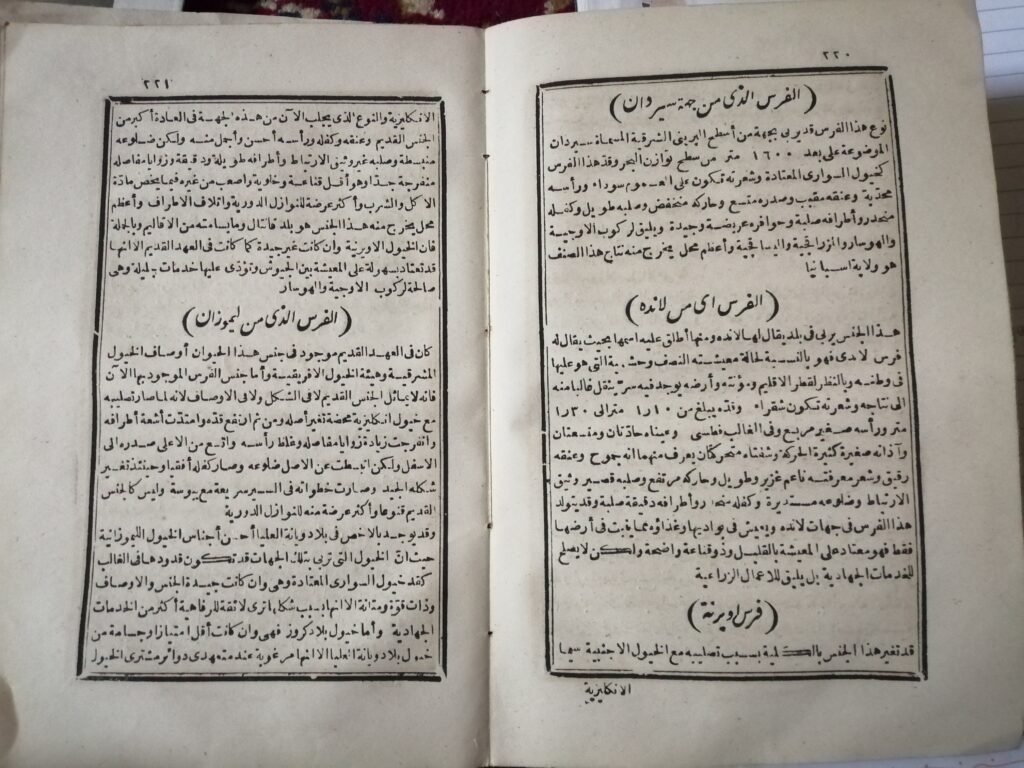 ٢٢٠
(الفرس الذى من جهة سيردان)
نوع هذا الفرس قد يربى بجهة من أسطح البرينى الشرقية المسماة سيردان
الموضوعة على بعد ١٦٠٠ متر من سطح توازن البحر وقد هذا الفرس
كخيول السوارى المعتادة وشعرته تكون على العموم سوداء ورأسه
محدبة وعنقه مقبب وصدره متسع وحاركه منخفض وصلبه طويل وكفله
منحدر وأطرافه صلبة وحوافره عريضة وجيدة ويليق لركوب الاوجية
والهوسار والزراقجية واليساقجية وأعظم محل يخرج منه نتاج هذا الصنف
هو ولاية اسبانيا
(الفرس اى من لانده)
هذا الجنس يربى فى بلد يقال لها لانده ومنها أطلق عليه اسمها بحيث يقال له
فرس لاندى فهو بالنسبة لحالة معيشته النصف وحشية التى هو عليها
فى وطنه وبالنظر لقطر الاقليم ومؤنته وأرضه يوجد فيه سر ينتقل غالبا منه
الى نتاجه وشعرته تكون شقراء وقده يبلغ من ١ر١٠ متر الى ١ر٣٠
متر ورأسه صغير مربع وفى الغالب فطسى وعيناه حادتان ومتسعتان
وآذانه صغيرة كثيرة الحركة وشفتاه متحركتان يعرف منهما انه جموح وعنقه
رقيق وشعر معرفته ناعم غزير وطويل وحاركه مرتفع وصلبه قصير وثيق
الارتباط وضلوعه مستديرة وكفله منحدر وأطرافه دقيقة صلبة وقد يتولد
هذا الفرس فى جهات لانده ويعيش فى بواديها وغذاؤه مما ينبت فى أرضها
فقط فهو معتاد على المعيشة بالقليل وذو قناعة واضحة ولكن لا يصلح
للخدمات الجهادية بل يليق للاعمال الزراعية
(فرس اويرنة)
قد تغير هذا الجنس بالكلية بسبب تصليبه مع الخيول الاجنبية سيما
الانكليزية
٢٢١
الانكليزية والنوع الذى يجلب الآن من هذه الجهة فى العادة أكبر من
الجنس القديم وعنقه وكفله ورأسه أحسن وأجمل منه ولكن ضلوعه
منبسطة وصلبه غير وثيق الارتباط وأطرافه طويلة ودقيقة وزوايا مفاصله
منفرجة جدا وهو أقل قناعة وخلوية وأصعب من غيره فيما يخص مادة
الاكل والشرب وأكثر عرضة للنوازل الدورية واتلاف الاطراف وأعظم
محل يخرج منه هذا الجنس هو بلد قانتال وما يسامته من الاقاليم وبالجلة
فان الخيول الاويرنية وان كانت غير جيدة كما كانت فى العهد القديم الا انها
قد تعتاد بسهولة على المعيشة بين الجيوش وتؤدى عليها خدمات جليلة وهى
صالحة لركوب الاوجية والهوسار
(الفرس الذى من ليموزان)
كان فى العهد القديم موجود فى جنس هذا الحيوان أوصاف الخيول
المشرقية وهيئة الخيول الافريقية وأما جنس الفرس الموجود بها الآن
فانه لا يماثل الجنس القديم لا فى الشكل ولا فى الاوصاف لانه لما صار تصليبه
مع خيول انكليزية محضة تغير أصله ومن ثم ارتفع قده وامتدت أشعة أطرافه
وانفرجت زيادة زوايا مفاصله وغلظ رأسه واتسع من الاعلى صدره الى
الاسفل ولكن انبسطت عن الاصل ضلوعه وصار كفله أفقيا وحينئذ تغير
شكله الجيد وصارت خطواته فى السير سريعة مع يبوسة وليس كالجنس
القديم قنوعا وأكثر عرضة منه للنوازل الدورية
وقد يوجد بالاخص فى بلاد ويانة العليا أحسن أجناس الخيول الليموزانية
حيث ان الخيول التى تربى بتلك الجهات قد تكون قدودها فى الغالب
كقد خيول السوارى المعتادة وهى وان كانت جيدة الجنس والاوصاف
وذات قوة ومتانة الا انها بسبب شكلها ترى لائقة للرفاهية أكثر من الخدمات
الجهادية وأما خيول بلاد كروز فهى وان كانت أقل امتيازا وجسامة من
خيول بلاد ويانة العليا الا انها مرغوبة عند متعهدى دوائر مشترى الخيول